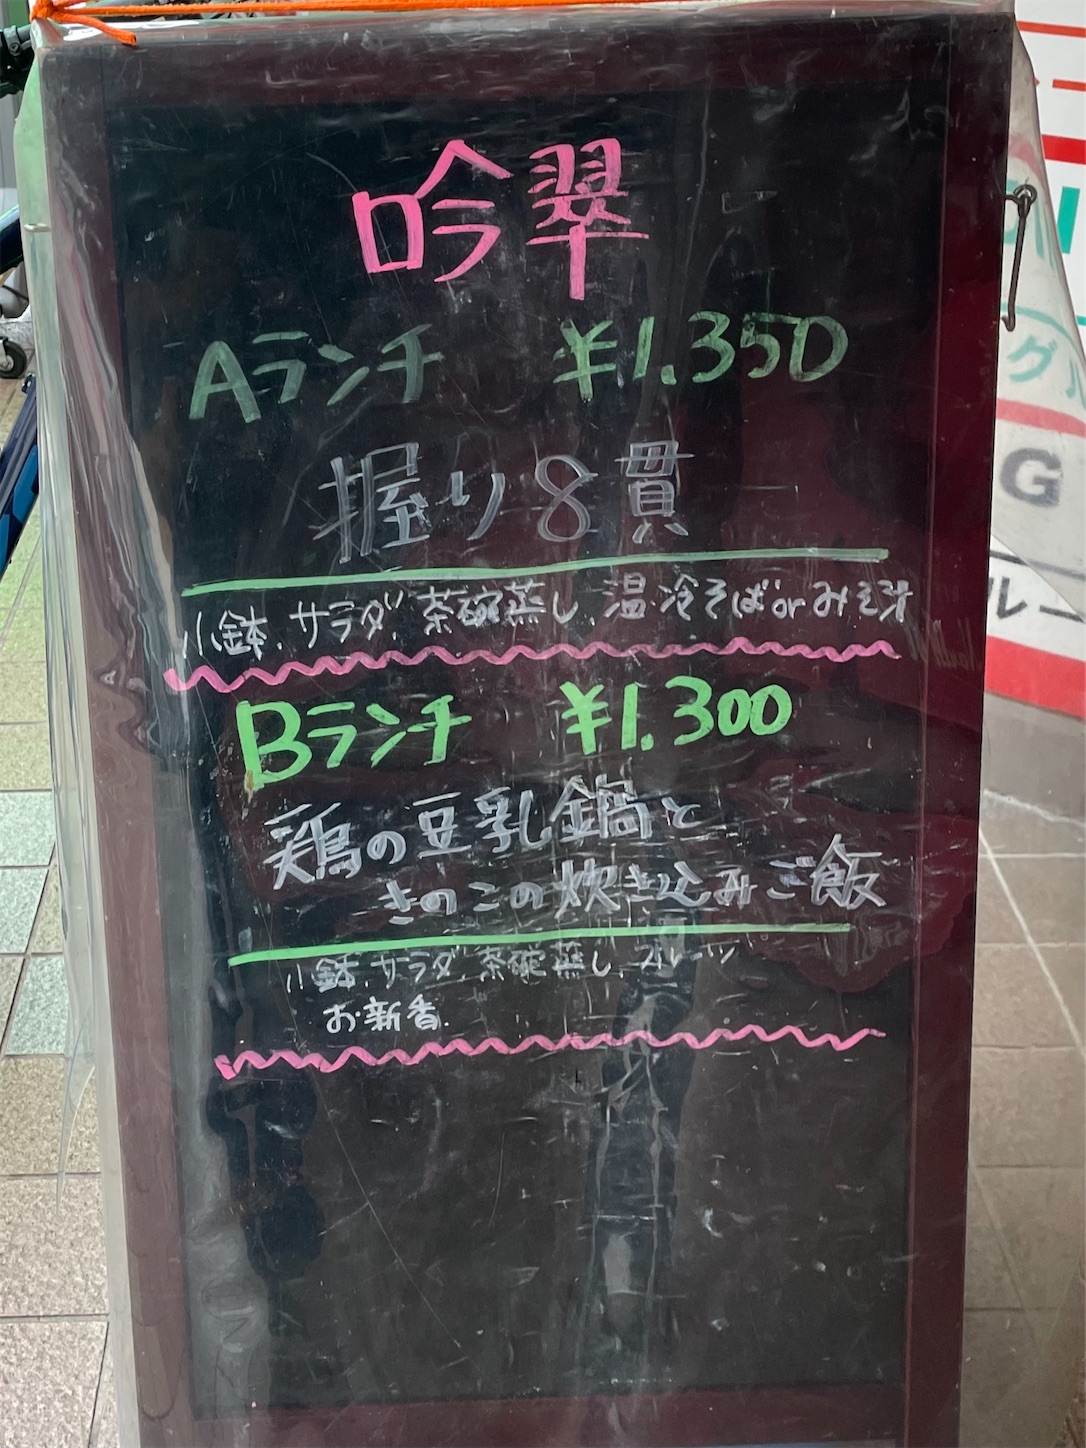 吟翠
Aランチ ¥1.350
握り8貫
小鉢、サラダ、茶碗蒸し、温・冷そばorみそ汁
Bランチ ¥1.300
鶏の豆乳鍋と
きのこの炊き込みご飯
小鉢、サラダ、茶碗蒸し、フルーツ
お新香
グル
G
ルー